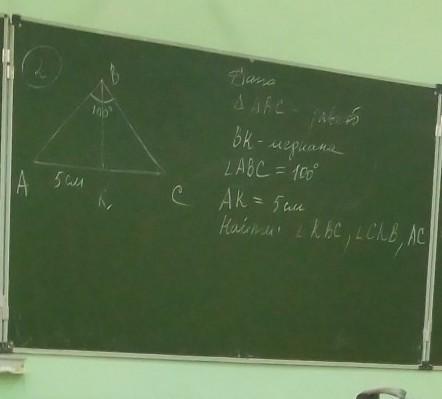 2
B
100°
A
5 см
K
C
Дано
△ABC - равноб
BK - медиана
∠ABC = 100°
AK = 5 см
Найти: ∠KBC, ∠CKB, AC